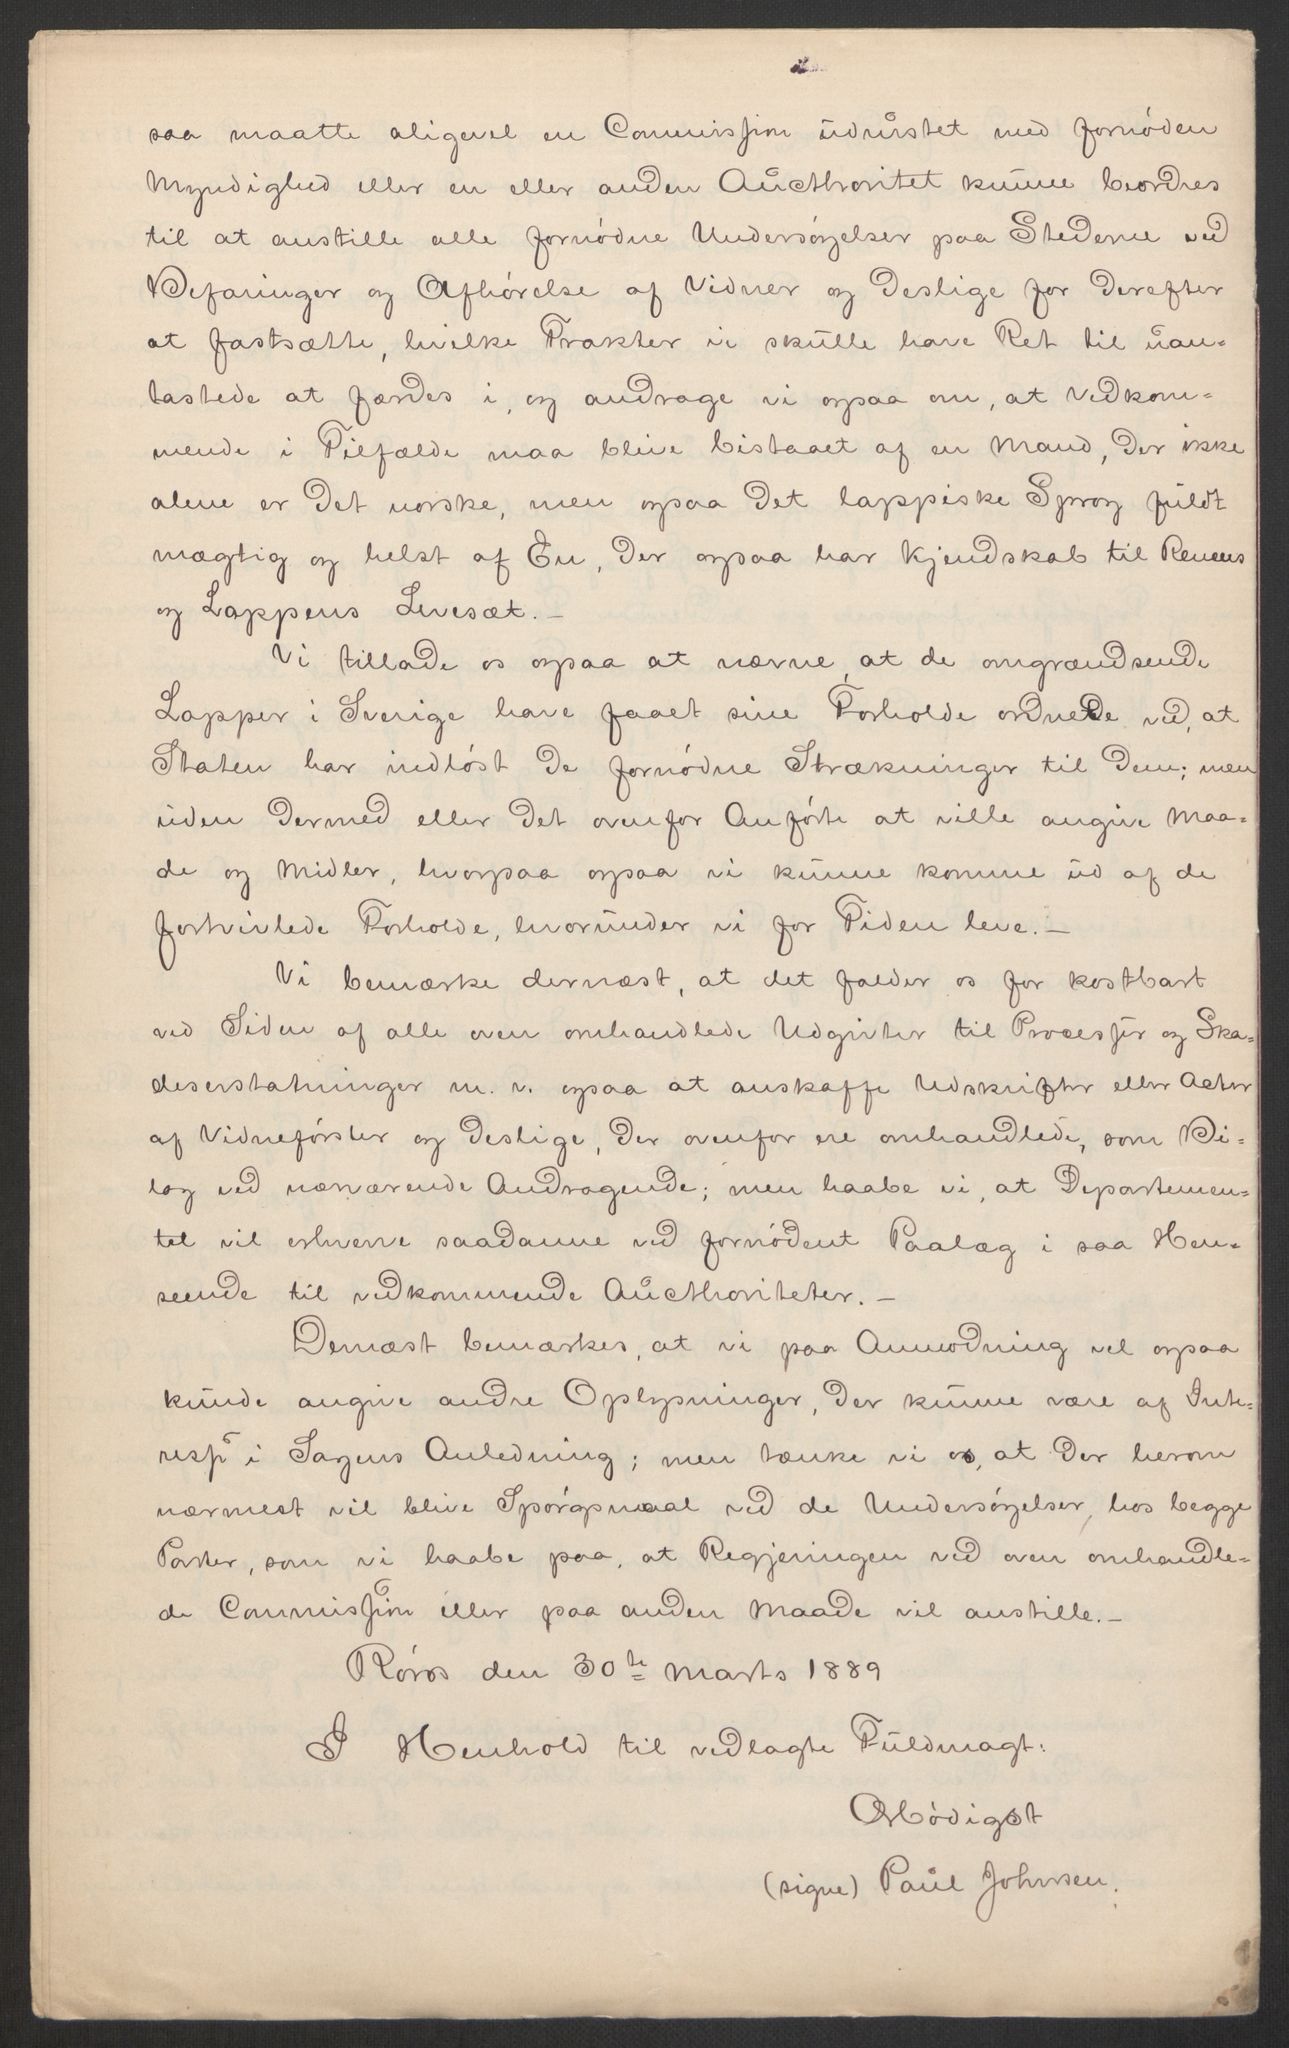 saa maatte aligevel en Commission udrüstet med fornöden
Myndighed eller en eller anden Aucthoritet kunne beordres
til at anstille alle fornödne Undersögelser paa Stederne ved
Befaringer og Afhörelse af Vidner og Deslige for Derefter
at fastsætte, hvilke Trakter vi skulle have Ret til uan-
tastede at færdes i, og andrage vi ogsaa om, at Vedkom-
mende i Tilfælde maa blive bistaaet af en Mand, Der ikke
alene er Det norske, men ogsaa Det lappiske Sprog fuldt
mægtig og helst af En, Der ogsaa har Kjendskab til Renens
og Lappens Levesæt.—
Vi tillade os ogsaa at nævne, at de omgrændsende
Lapper i Sverige have faaet sine Forholde ordnede ved, at
Staten har indlöst De fornödne Strækninger til Dem; men
uden Dermed eller Det ovenfor Anförte at ville angive Maa-
de og Midler, hvorpaa ogsaa vi kunne komme ud af de
fortvivlede Forholde, hvorunder vi for Tiden leve.—
Vi bemærke dernæst, at det falder os for kostbart
ved Siden af alle oven omhandlede Udgivter til Processer og Ska-
deserstatninger m. v. ogsaa at anskaffe Udskrifter eller Acter
af Vidneförsler og Deslige, Der ovenfor ere omhandlede, som Bi-
lag ved nærværende Andragende; men haabe vi, at Departemen-
tet vil erhverve saadanne ved fornödent Paalæg i saa Hen-
seende til vedkommende Aucthoriteter.—
Dernæst bemærkes, at vi paa Anmodning vel ogsaa
kunde angive andre Oplysninger, Der kunne være af Inte-
resse i Sagens Anledning; men tænke vi os, at Der herom
nærmest vil blive Spörgsmaal ved de Undersögelser, hos begge
Parter, som vi haabe paa, at Regjeringen ved oven omhandle-
de Commission eller paa anden Maade vil anstille.—
Röros den 30te Marts 1889
I Henhold til vedlagte Fuldmagt:
Ærbödigst
(signe) Paul Johnsen.